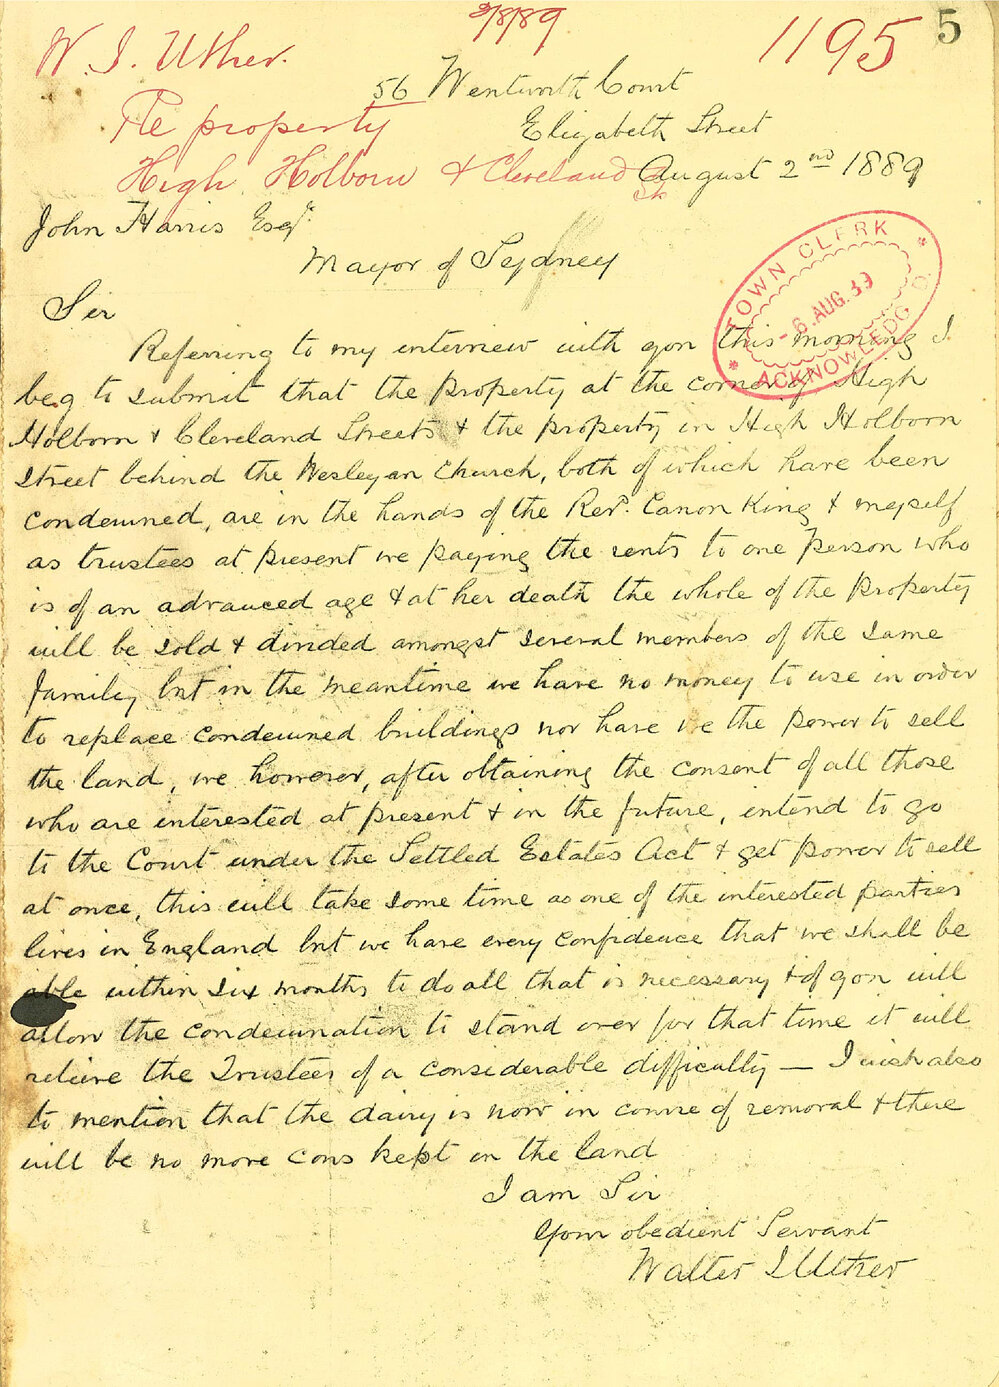 2/8/89
1195
5
W. I. Uther.
56 Wentworth Court
Re property
Elizabeth Street
High Holborn & Cleveland Sts
August 2nd 1889
John Harris Esqr.
Mayor of Sydney
TOWN CLERK
- 6. AUG. 89
ACKNOWLEDG'D.
Sir
Referring to my interview with you this morning I
beg to submit that the Property at the corner of High
Holborn & Cleveland Streets & the property in High Holborn
Street behind the Wesleyan Church, both of which have been
condemned, are in the hands of the Revd. Canon King & myself
as trustees at present we paying the rents to one Person who
is of an advanced age & at her death the whole of the Property
will be sold & divided amongst several members of the same
family but in the meantime we have no money to use in order
to replace condemned buildings nor have we the power to sell
the land, we however, after obtaining the consent of all those
who are interested at present & in the future, intend to go
to the Court under the Settled Estates Act & get power to sell
at once, this will take some time as one of the interested parties
lives in England but we have every confidence that we shall be
able within six months to do all that is necessary & if you will
allow the condemnation to stand over for that time it will
relieve the Trustees of a considerable difficulty — I wish also
to mention that the dairy is now in course of removal & there
will be no more cows kept on the land
I am Sir
Your obedient Servant
Walter I Uther